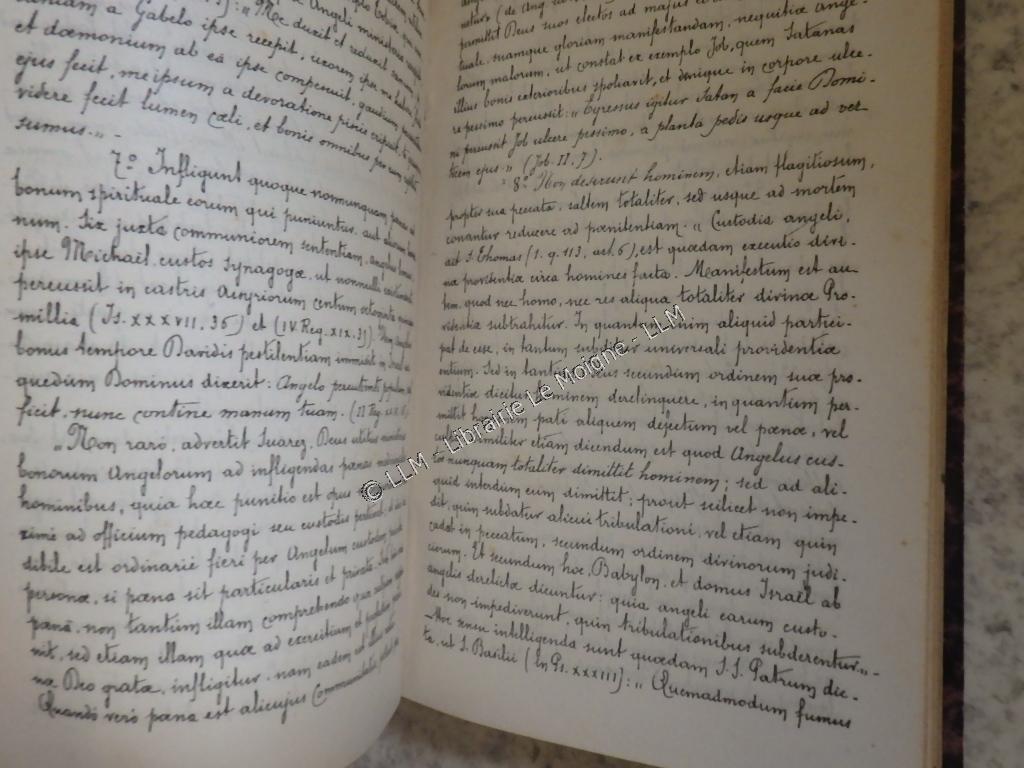 a Gabelo ipse recepit, uxorem ipse me habere fecit,
et dæmonium ab ea ipse compescuit, gaudium
ejus fecit, meipsum a devoratione piscis eripuit, te quoque
videre fecit lumen cœli, et bonis omnibus per eum repleti
sumus." -
7.° Infligunt quoque nonnunquam pœnas ad
bonum spirituale eorum qui puniuntur, aut aliorum
num. Sic juxta communiorem sententiam, angelus bonus,
ipse Michaël, custos Synagogæ, ut nonnulli
percussit in castris Assyriorum centum octoginta quinque
millia (Is. xxxvii. 36) et (IV. Reg. xix. 35).
bonus tempore Davidis pestilentiam immisit in Israel
quedum Dominus dixerit: Angelo percutienti populum
ficit, nunc contine manum tuam. (II Reg.
„Non raro, advertit Suarez, Deus utitur ministerio
bonorum Angelorum ad infligendas pœnas
hominibus, quia hæc punitio est opus
xime ad officium pedagogi seu custodis pertinet
dibile est ordinarie fieri per Angelum custodem
personæ, si pœna sit particularis et privata.
pœnâ, non tantum illam comprehendo quæ
nit, sed etiam illam quæ ad exercitium et
næ Deo grata, infligitur, nam eadem est
Quando vero pœna est alicujus Communitatis,
natur" (de Ang.
permittit Deus suos electos ad majus
tuale, suamque gloriam manifestandam, nequitiæ ange-
lorum malorum, ut constat ex exemplo Job, quem Satanas
illius bonis exterioribus spoliavit, et denique in corpore ulce-
re pessimo percussit: „Egressus igitur Satan a facie Domi-
ni percussit Job ulcere pessimo, a planta pedis usque ad ver-
ticem ejus" (Job. II. 7).
8.° Non deserunt hominem, etiam flagitiosum,
propter sua peccata, saltem totaliter, sed usque ad mortem
conantur reducere ad pœnitentiam. „Custodia angeli,
ait S. Thomas (1. q. 113, art. 6), est quædam executio divi-
næ providentiæ circa homines facta. Manifestum est au-
tem, quod nec homo, nec res aliqua totaliter divinæ Pro-
videntiæ subtrahitur. In quantum enim aliquid partici-
pat de esse, in tantum subditur universali providentiæ
entium. Sed in tantum Deus secundum ordinem suæ pro-
videntiæ dicitur hominem derelinquere, in quantum per-
mittit hominem pati aliquem defectum vel pœnæ, vel
culpæ. Similiter etiam dicendum est quod Angelus cus-
tos nunquam totaliter dimittit hominem; sed ad ali-
quid interdum eum dimittit; prout scilicet non impe-
dit, quin subdatur alicui tribulationi, vel etiam quin
cadat in peccatum, secundum ordinem divinorum judi-
ciorum. Et secundum hoc, Babylon, et domus Israël ab
angelis derelictæ dicuntur: quia angeli earum custo-
des non impediverunt, quin tribulationibus subderentur". -
- Hoc sensu intelligenda sunt quædam S.S. Patrum dic-
ta, ut S. Basilii (In Ps. xxxiii): „Quemadmodum fumus
© LLM - Librairie Le Moigne - LLM